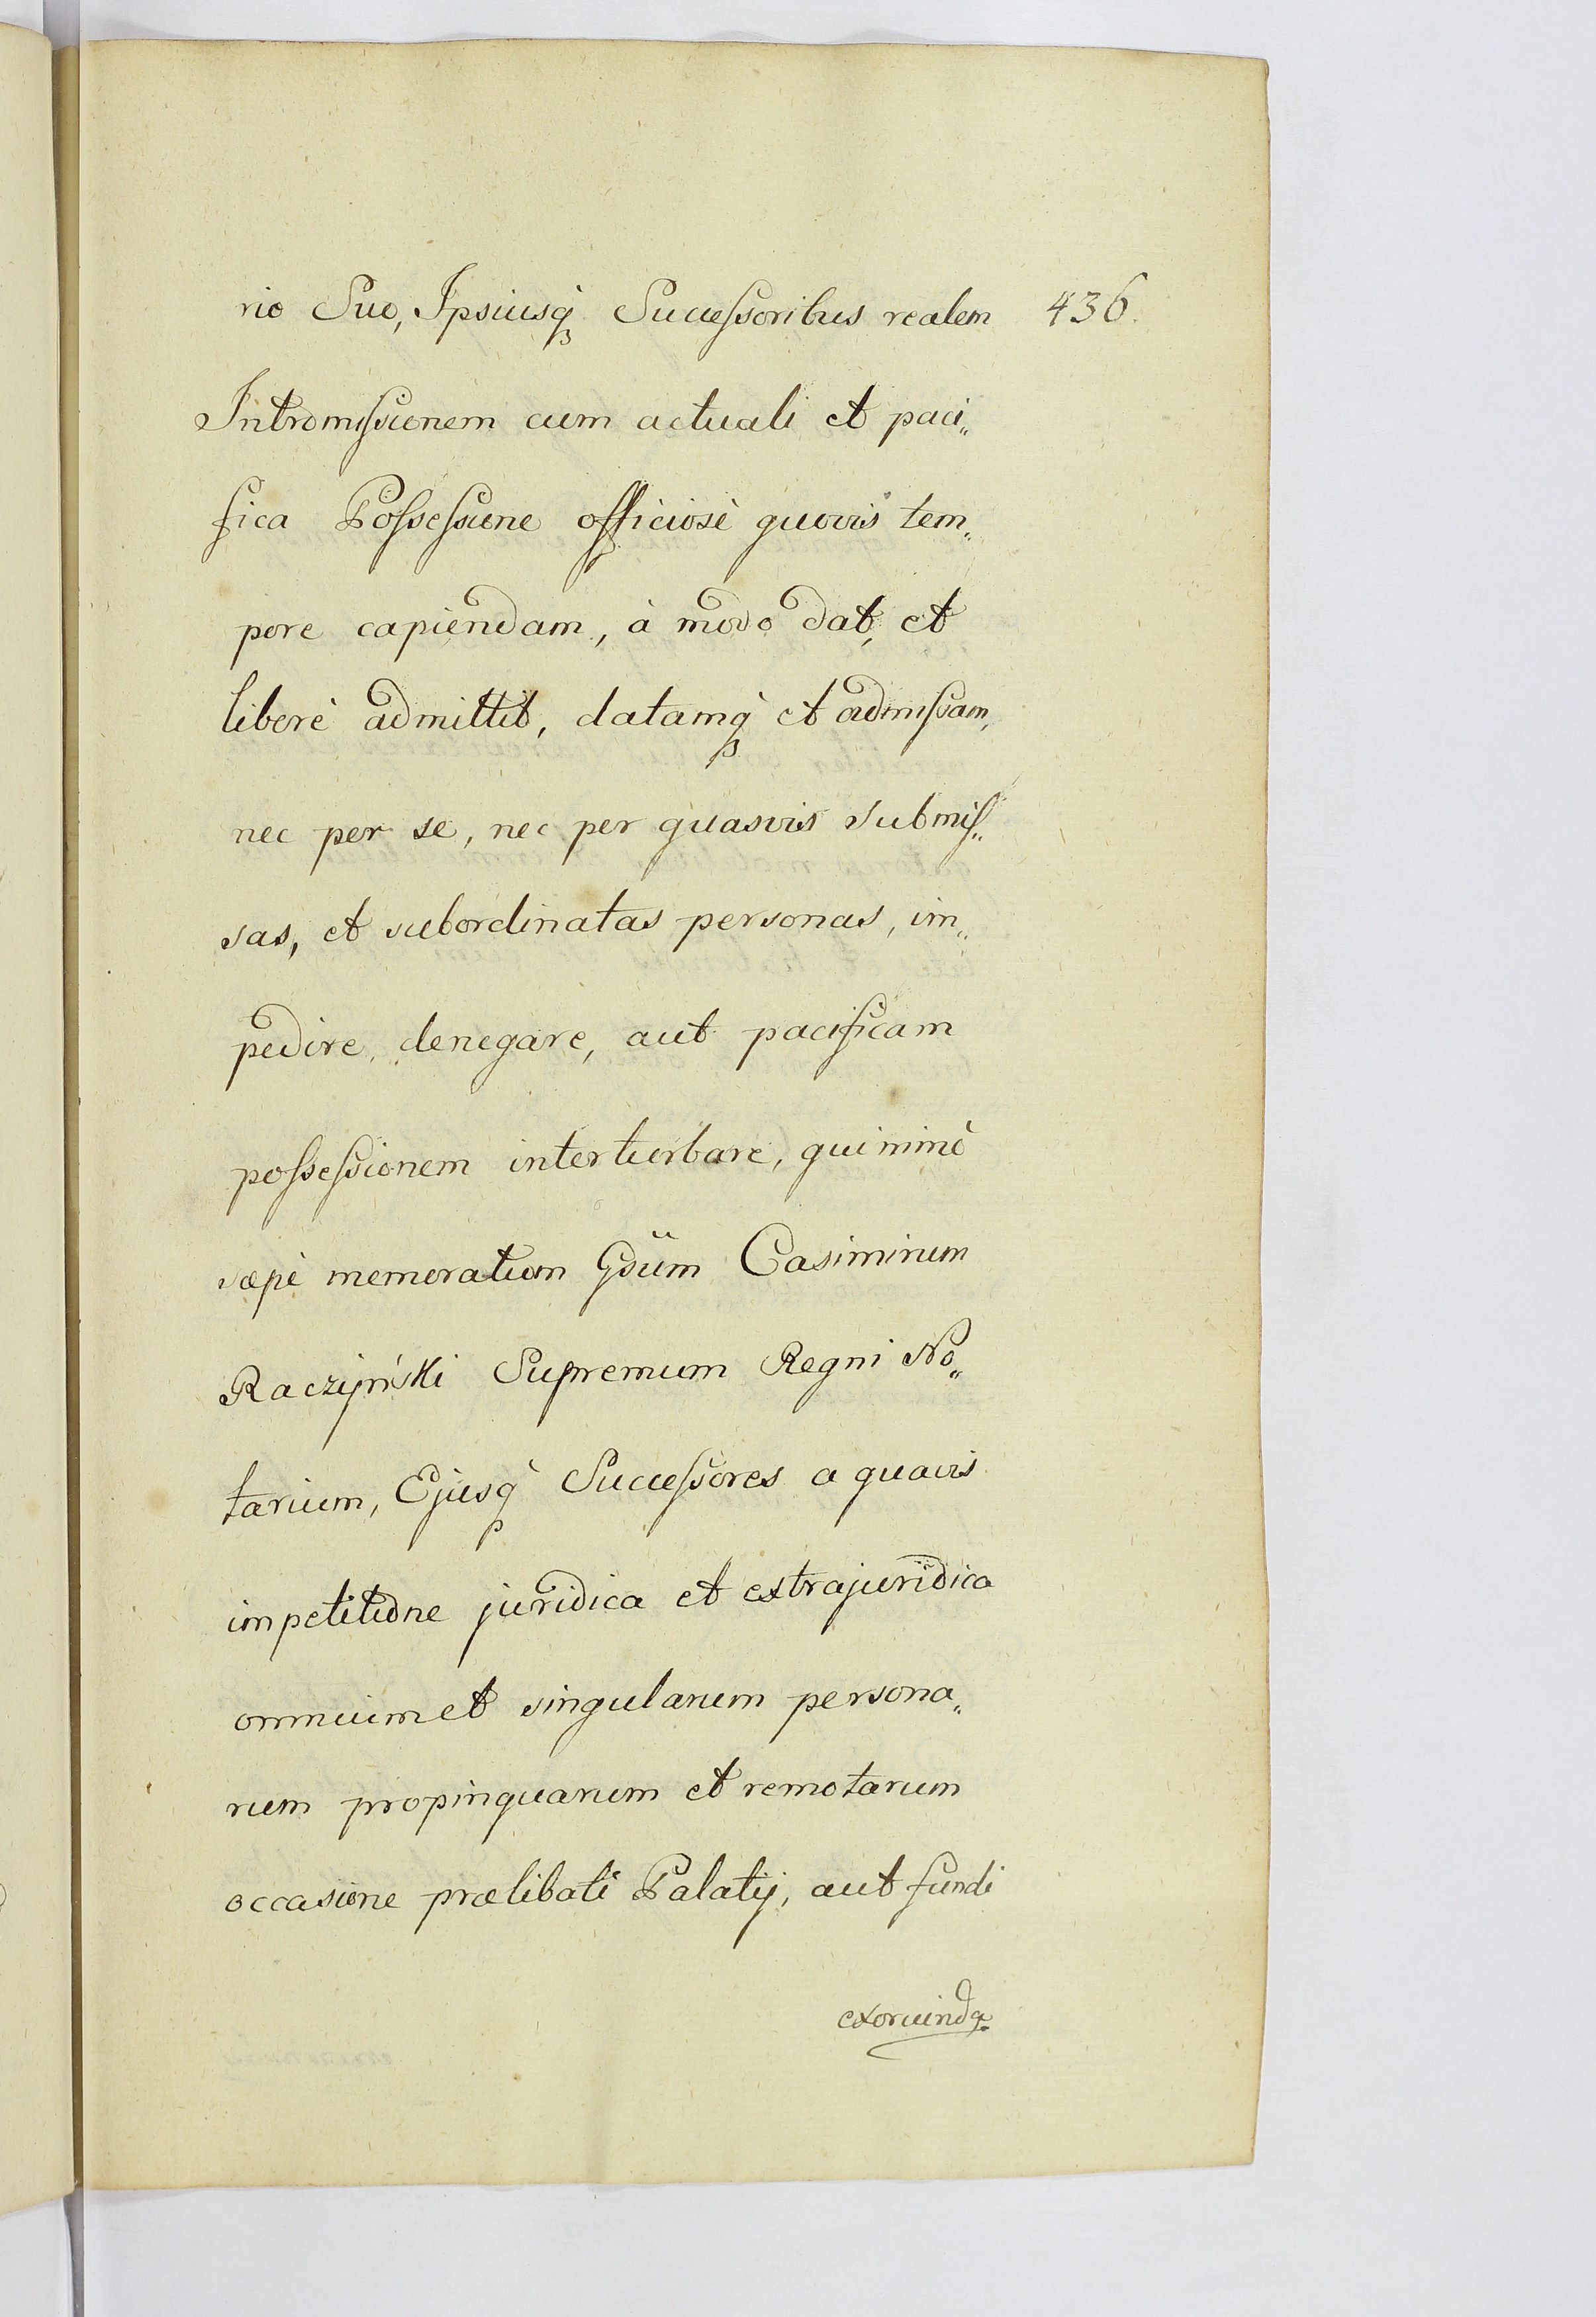 rio Suo, Ipsiusq̀ Succeſsoribus realem 436.
Intromiſsionem cum actuali et paci„
fica Poſseſsione officiosè quovis tem„
pore capiendam, à modo dat, et
liberè admittit, datamq̀ et admiſsam,
nec per se, nec per quasvis submiſ„
sas, et subordinatas personas, im„
pedire, denegare, aut pacificam
poſseſsionem interturbare, quinimò
sæpè memoratum Gsüm Casimirum
Raczyński Supremum Regni No„
tarium, Ejusq̀ Succeſsores a quavis
impetitione juridica et extrajuridica
omnium et singularum persona„
rum propinquarum et remotarum
occasione prælibati Palatij, aut fundi